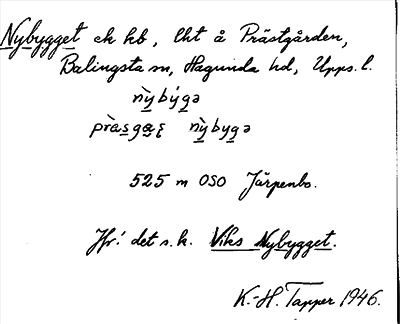 Nybygget ek hb, lht å Prästgården,
Balingsta sn, Hagunda hd, Upps. l.
nỳbýgə
pràsgaʀ nỳbygə
525 m OSO Järpenbo.
Jfr! det s.k. Viks Nybygget.
K.-H. Tapper 1946.